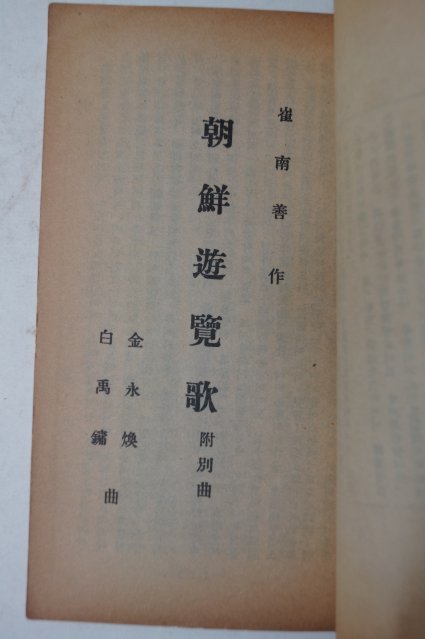 崔南善作
朝鮮遊覽歌附別曲
金永煥
白禹鏞
曲